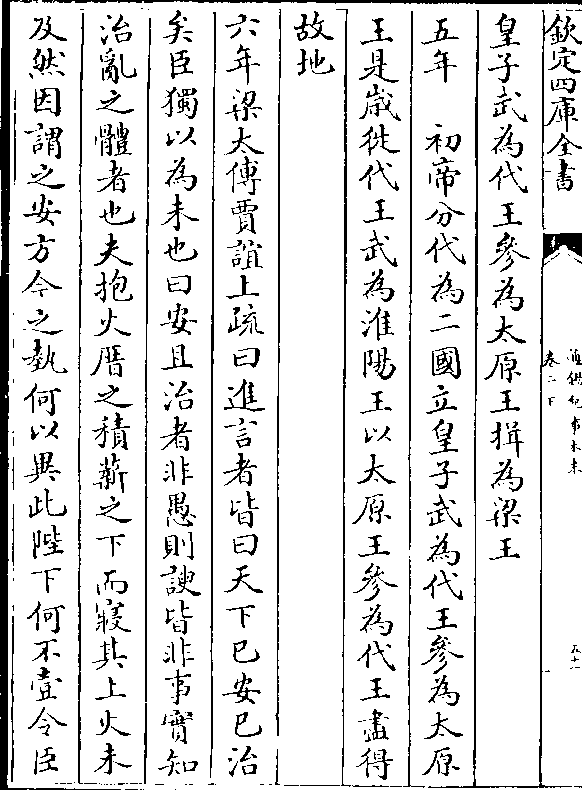 欽定四庫全書
通鑑紀事本末
卷二下
五十一
皇子武為代王參為太原王揖為梁王
五年　初帝分代為二國立皇子武為代王參為太原
王是嵗徙代王武為淮陽王以太原王參為代王盡得
故地
六年梁太傅賈誼上疏曰進言者皆曰天下已安已治
矣臣獨以為未也曰安且治者非愚則諛皆非事實知
治亂之體者也夫抱火厝之積薪之下而寢其上火未
及然因謂之安方今之埶何以異此陛下何不壹令臣